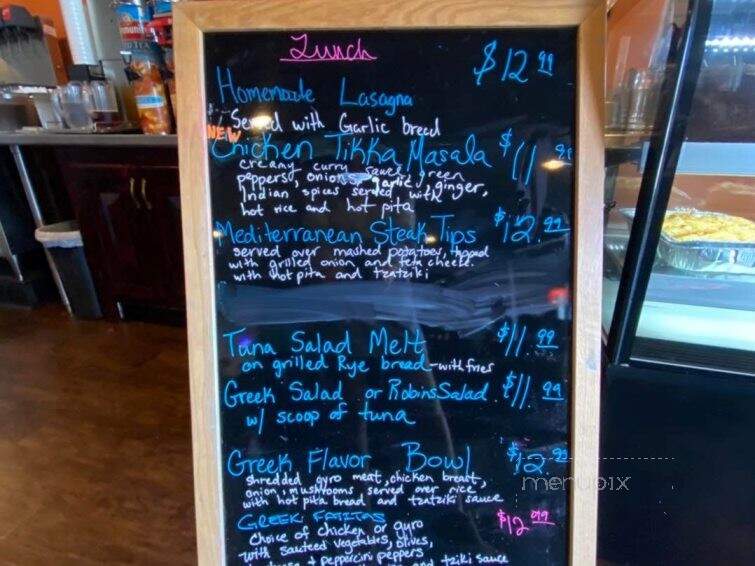 Lunch
Homemade Lasagna $12.99
Served with Garlic bread
NEW
Chicken Tikka Masala $11.99
creamy curry sauce, green
peppers, onions, garlic, ginger,
Indian spices served with
hot rice and hot pita
Mediterranean Steak Tips $12.99
served over mashed potatoes, topped
with grilled onion and feta cheese.
with hot pita and tzatziki
Tuna Salad Melt $11.99
on grilled Rye bread - with fries
Greek Salad or Robins Salad $11.99
w/ scoop of tuna
Greek Flavor Bowl $12.99
shredded gyro meat, chicken breast,
onion, mushrooms served over rice
with hot pita bread and tzatziki sauce
GREEK FAJITAS $12.99
Choice of chicken or gyro
with sauteed vegetables, olives,
+ peppercini peppers
and tziki sauce
menupix